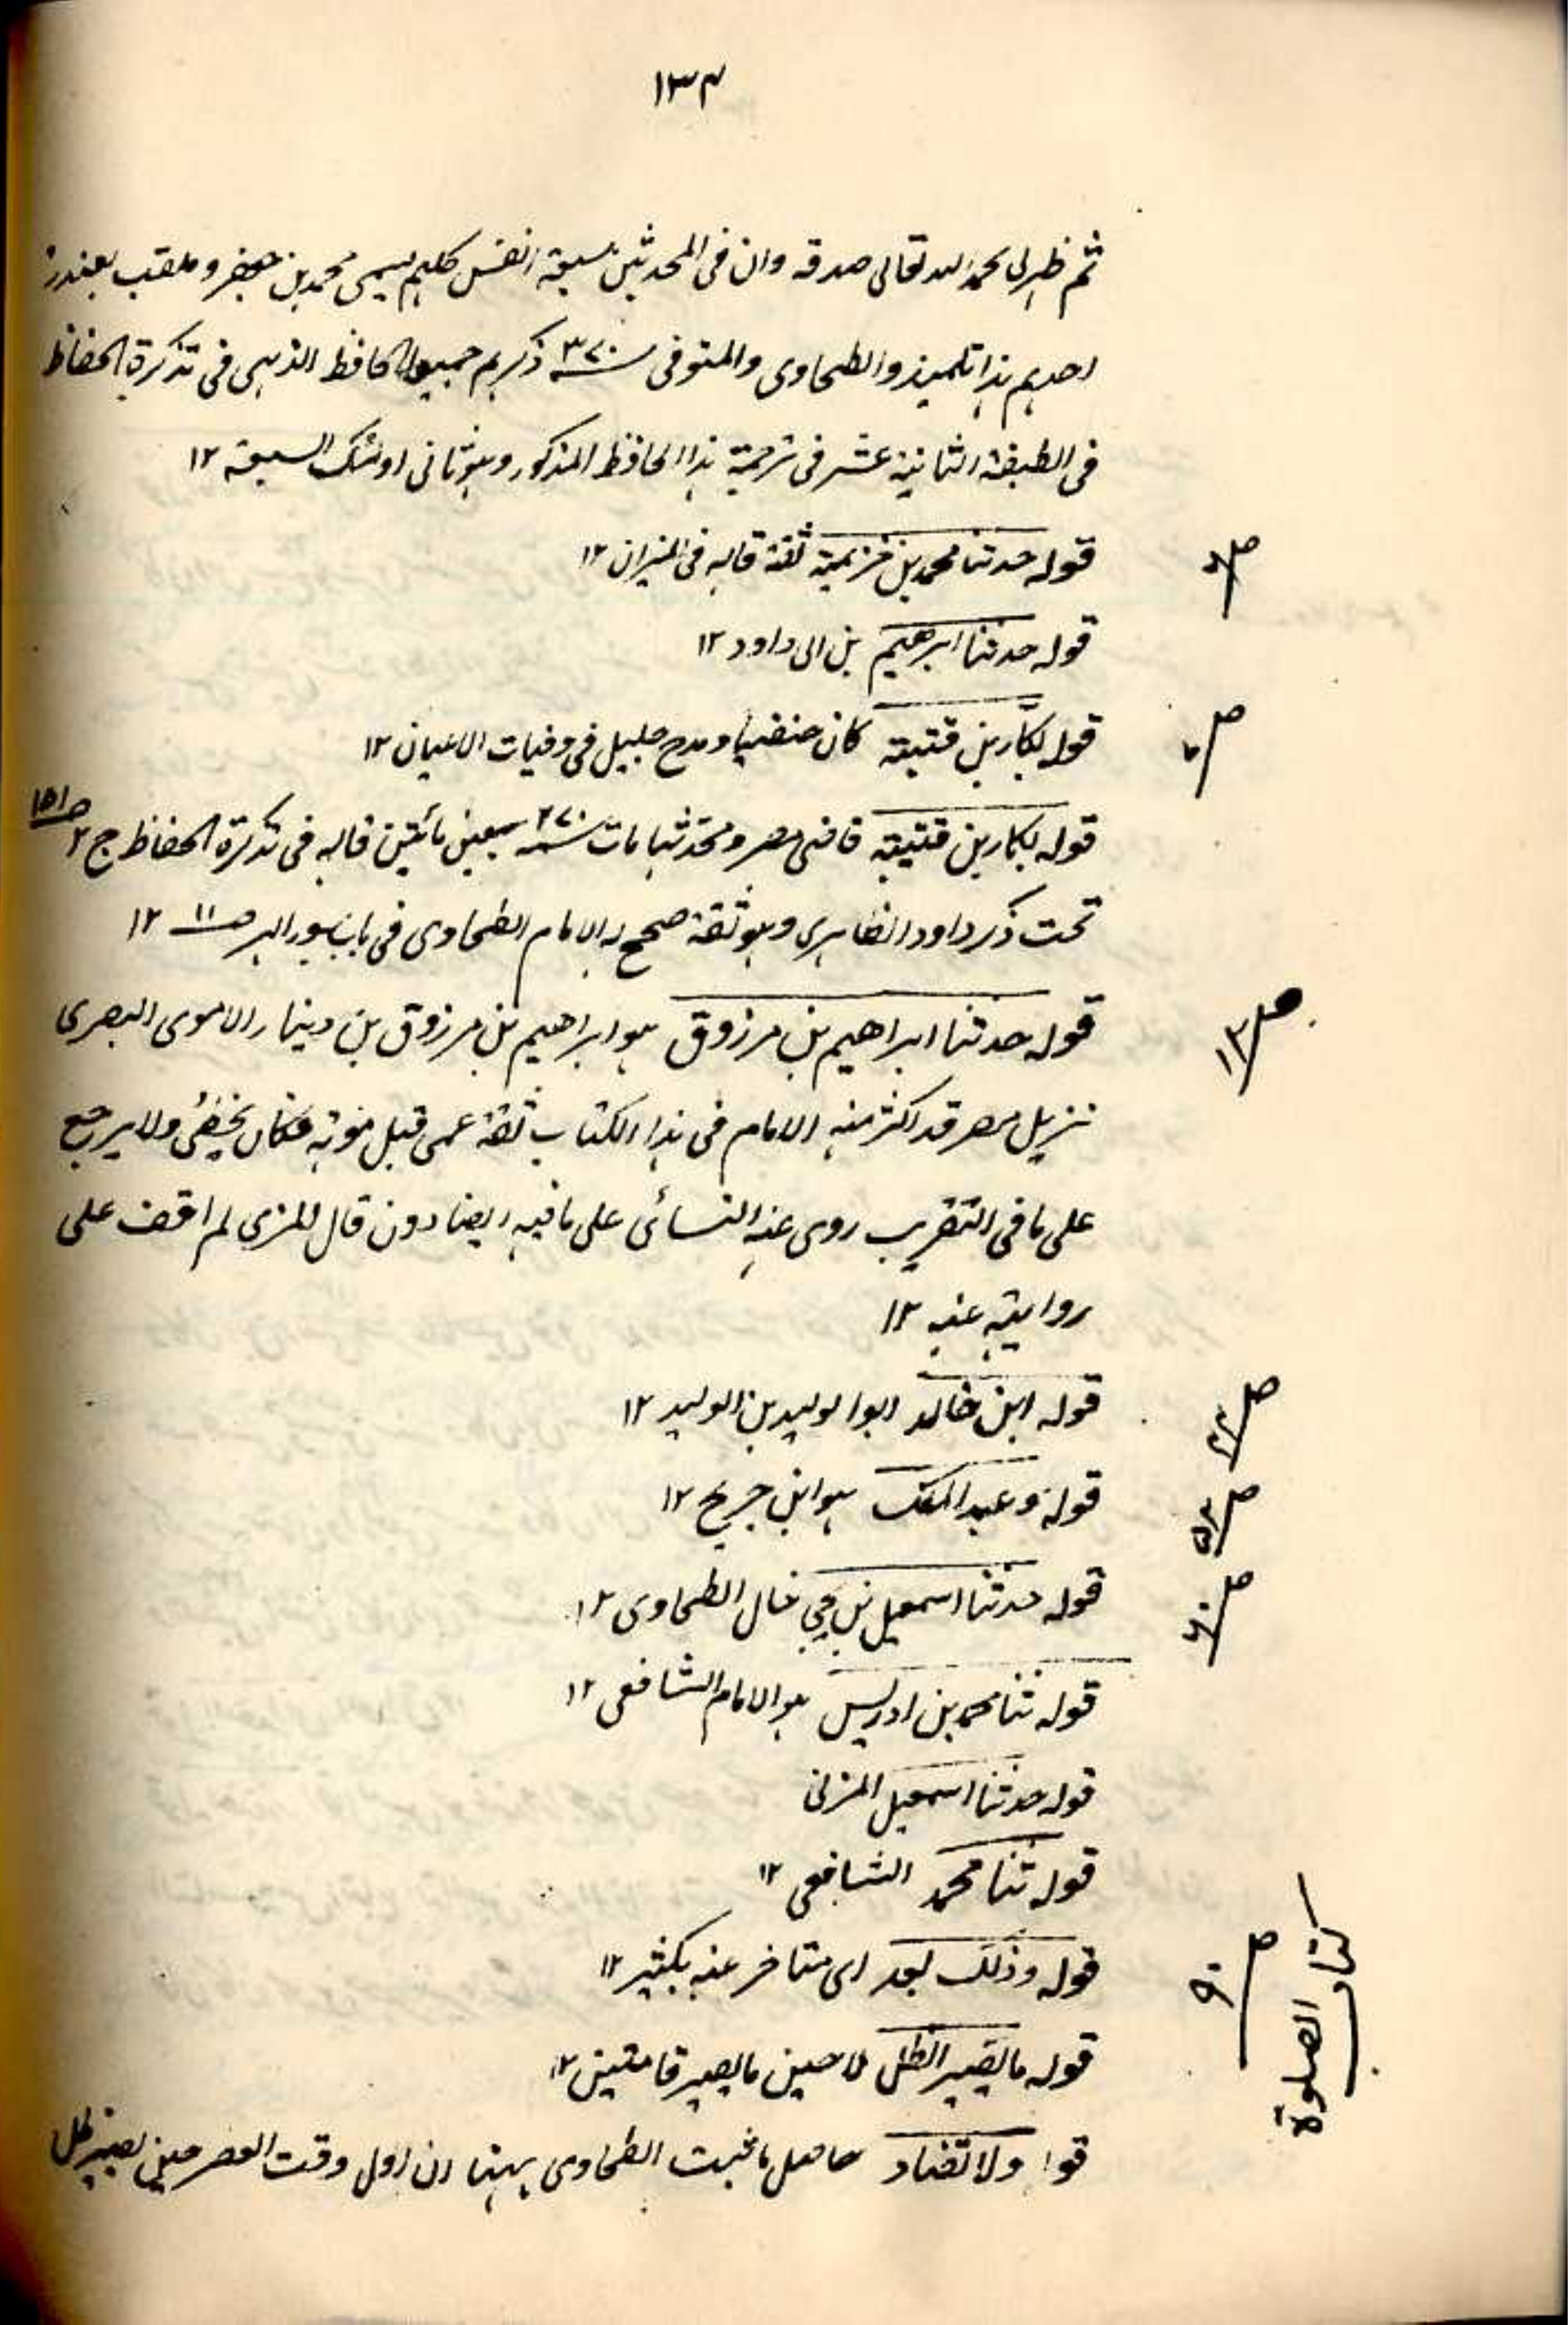 ١٣٣
ثم ظهر لی بحمد الله تعالی صدقه وان فی المحدثین سبعة انفس کلهم یسمی محمد بن جعفر و ملقب بغندر
احدهم هذا تلمیذ والطحاوی والمتوفی سنه ٣٧٠ ذکرهم جمیعا الحافظ الذهبی فی تذکرة الحفاظ
فی الطبقة الثانیة عشر فی ترجمة هذا الحافظ المذکور وهو ثانی اولئک السبعة ١٢
ص
قوله حدثنا محمد بن خزیمة ثقة قاله فی المیزان ١٢
قوله حدثنا ابرهیم بن ابی داود ١٢
ص
قوله بکّار بن قتیبة کان حنفیا ومدح جلیل فی وفیات الاعیان ١٢
قوله بکار بن قتیبة قاضی مصر ومحدثها مات سنه ٢٧٠ سبعین مائتین قاله فی تذکرة الحفاظ ج ٢ ص ١٥١
تحت ذکر داود الظاهری وهو ثقة صحح له الامام الطحاوی فی باب سور الهر صـ ١١ ١٢
ص ١٣
قوله حدثنا ابراهیم بن مرزوق هو ابراهیم بن مرزوق بن دینار الاموی البصری
نزیل مصر قد اکثر منه الامام فی هذا الکتاب ثقة عمی قبل موته فکان یخطئ ولا یرجع
علی ما فی التقریب روی عنه النسائی علی ما فیه ایضا دون قال المزی لم اقف علی
روایته عنه ١٢
ص
قوله ابن خالد ابو الولید بن الولید ١٢
ص ٥٣
قوله وعبد الملک هو ابن جریج ١٢
ص ٦٠
قوله حدثنا اسمعیل بن یحیی خال الطحاوی ١٢
قوله ثنا محمد بن ادریس هو الامام الشافعی ١٢
قوله حدثنا اسمعیل المزنی
قوله ثنا محمد الشافعی ١٢
کتاب الصلوة
ص ٩٠
قوله وذلک بعد ای متاخر عنه بکثیر ١٢
قوله ما یصیر الظل لا حین ما یصیر قامتین ١٢
قوله ولا تضاد حاصل ما ثبت الطحاوی ههنا ان اول وقت العصر حین یصیر ظل